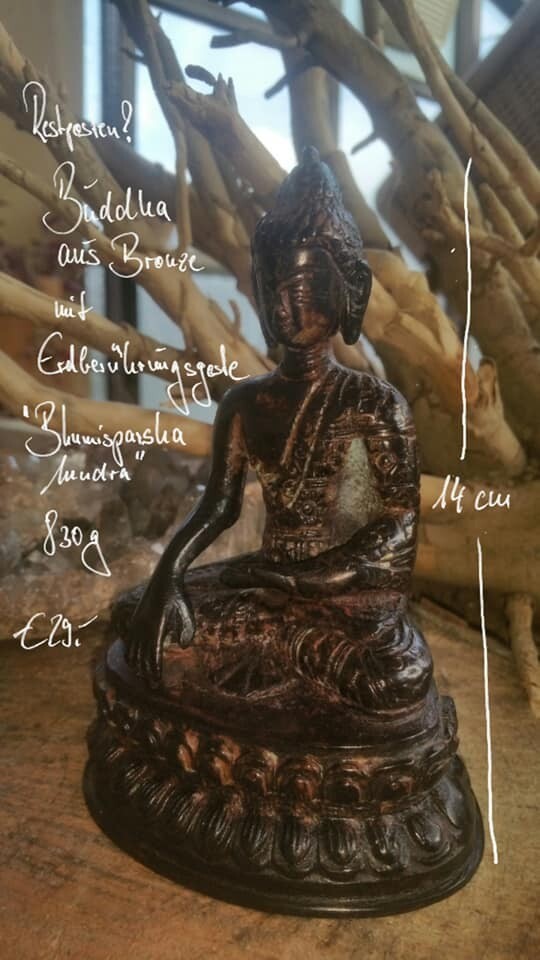 Restposten?
Buddha
aus Bronze
mit
Erdberührungsgeste
"Bhumisparsha
Mudra"
830g
€29.-
14 cm